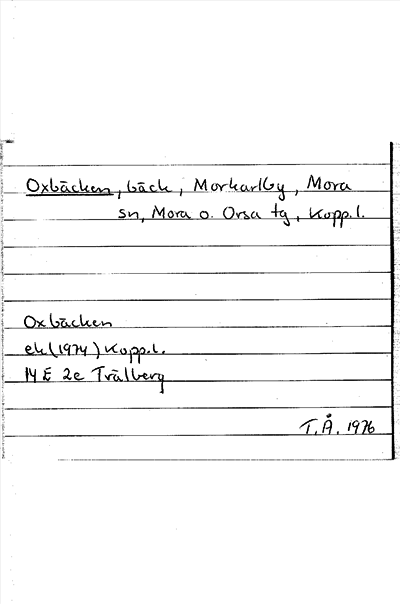 Oxbäcken, bäck, Morkarlby, Mora
sn, Mora o. Orsa tg, Kopp.l.
Oxbäcken
ek(1974) Kopp.l.
14 E 2e Trälberg
T.Å. 1976